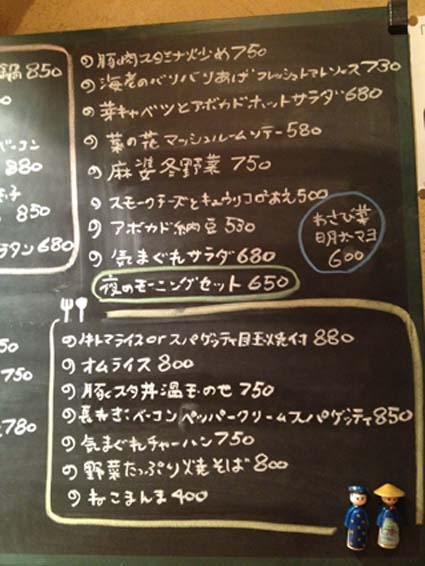 鍋850
ベーコン
880
850
タン680
750
780
の 豚肉スタミナ炒め750
の 海老のバリバリあげフレッシュトマトソース730
の 芽キャベツとアボカドホットサラダ680
の 菜の花マッシュルームソテー580
の 麻婆冬野菜 750
の スモークチーズとキュウリゴマあえ500
の アボカド納豆530
の 気まぐれサラダ680
夜のモーニングセット 650
わさび菜
明太マヨ
600
の 牛トマライスorスパゲッティ目玉焼付 880
の オムライス 800
の 豚スタ丼温玉のせ 750
の 長ねぎ・ベーコンペッパークリームスパゲッティ850
の 気まぐれチャーハン750
の 野菜たっぷり焼そば800
の ねこまんま400